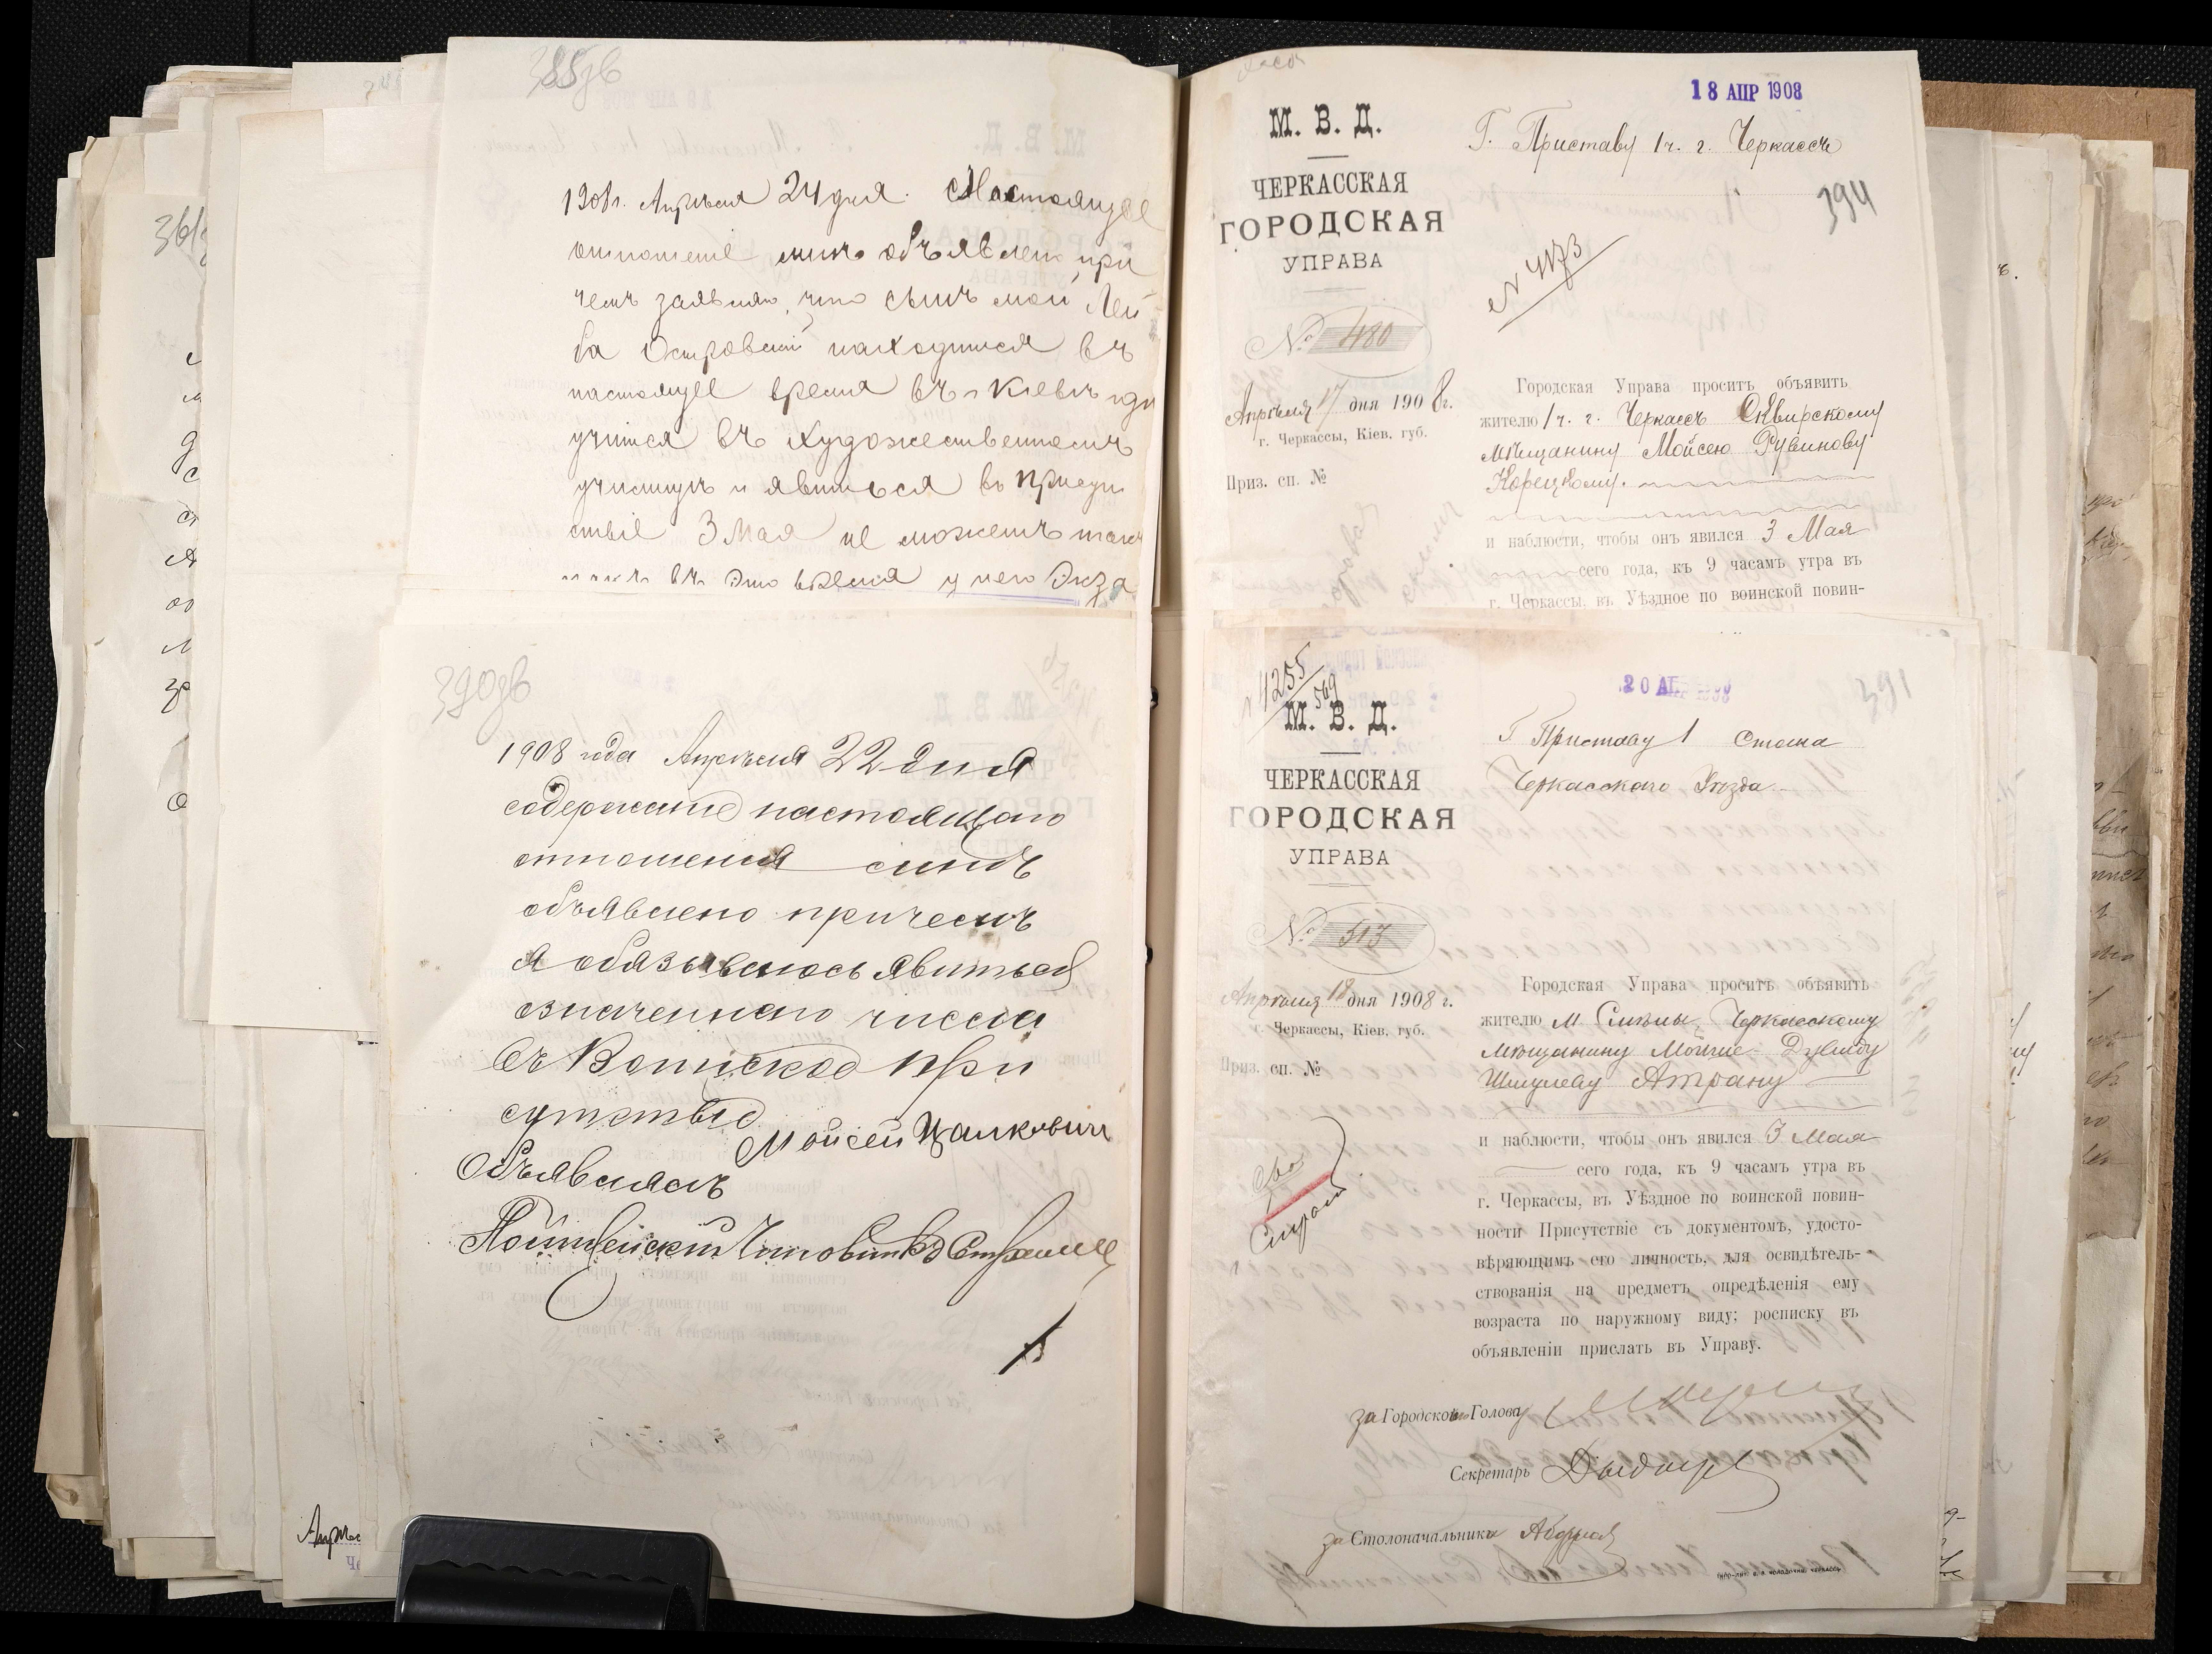 1908г. Апрѣля 24 дня. Настоящее
отношеніе мнѣ объявлено при
чемъ заявляю, что сынъ мой Лей
ба Островскій находится въ
настоящее время въ г Кіевѣ гдѣ
учится въ Художественномъ
училищѣ и явиться въ присут
ствіе 3 Мая не можетъ такъ
какъ въ это время у него Экза
390об
1908 года Апрѣля 22 дня
содержаніе настоящаго
отношенія мнѣ
объявлено причемъ
я обязываюсь явиться
означеннаго числа
въ Воинское при
сутствіе
Мойсей Цалковичъ
Объявлялъ
Полицейскій
18 АПР 1908
М. В. Д.
ЧЕРКАССКАЯ
ГОРОДСКАЯ
УПРАВА
№ 480
Апрѣля 17 дня 1908 г.
г. Черкассы, Кіев. губ.
Приз. сп. №
Г. Приставу 1 ч. г. Черкассъ
394
N 4173
Городская Управа проситъ объявить
жителю 1 ч. г. Черкассъ Сквирскому
мѣщанину Мойсею Рувинову
Корецкому.
и наблюсти, чтобы онъ явился 3 Мая
сего года, къ 9 часамъ утра въ
г. Черкассы, въ Уѣздное по воинской повин-
N 4255
569
20 АП
391
М. В. Д.
ЧЕРКАССКАЯ
ГОРОДСКАЯ
УПРАВА
№ 513
Апрѣля 18 дня 1908 г.
г. Черкассы, Кіев. губ.
Приз. сп. №
Г Приставу 1 Стана
Черкасскаго Уѣзда
Городская Управа проситъ объявить
жителю м Смѣлы, Черкасскому
мѣщанину Мойше-Дувиду
Шмулеву Атрану
и наблюсти, чтобы онъ явился 3 Мая
сего года, къ 9 часамъ утра въ
г. Черкассы, въ Уѣздное по воинской повин-
ности Присутствіе съ документомъ, удосто-
вѣряющимъ его личность, для освидѣтель-
ствованія на предметъ опредѣленія ему
возраста по наружному виду; росписку въ
объявленіи прислать въ Управу.
за Городского Голову
Секретарь
за Столоначальника